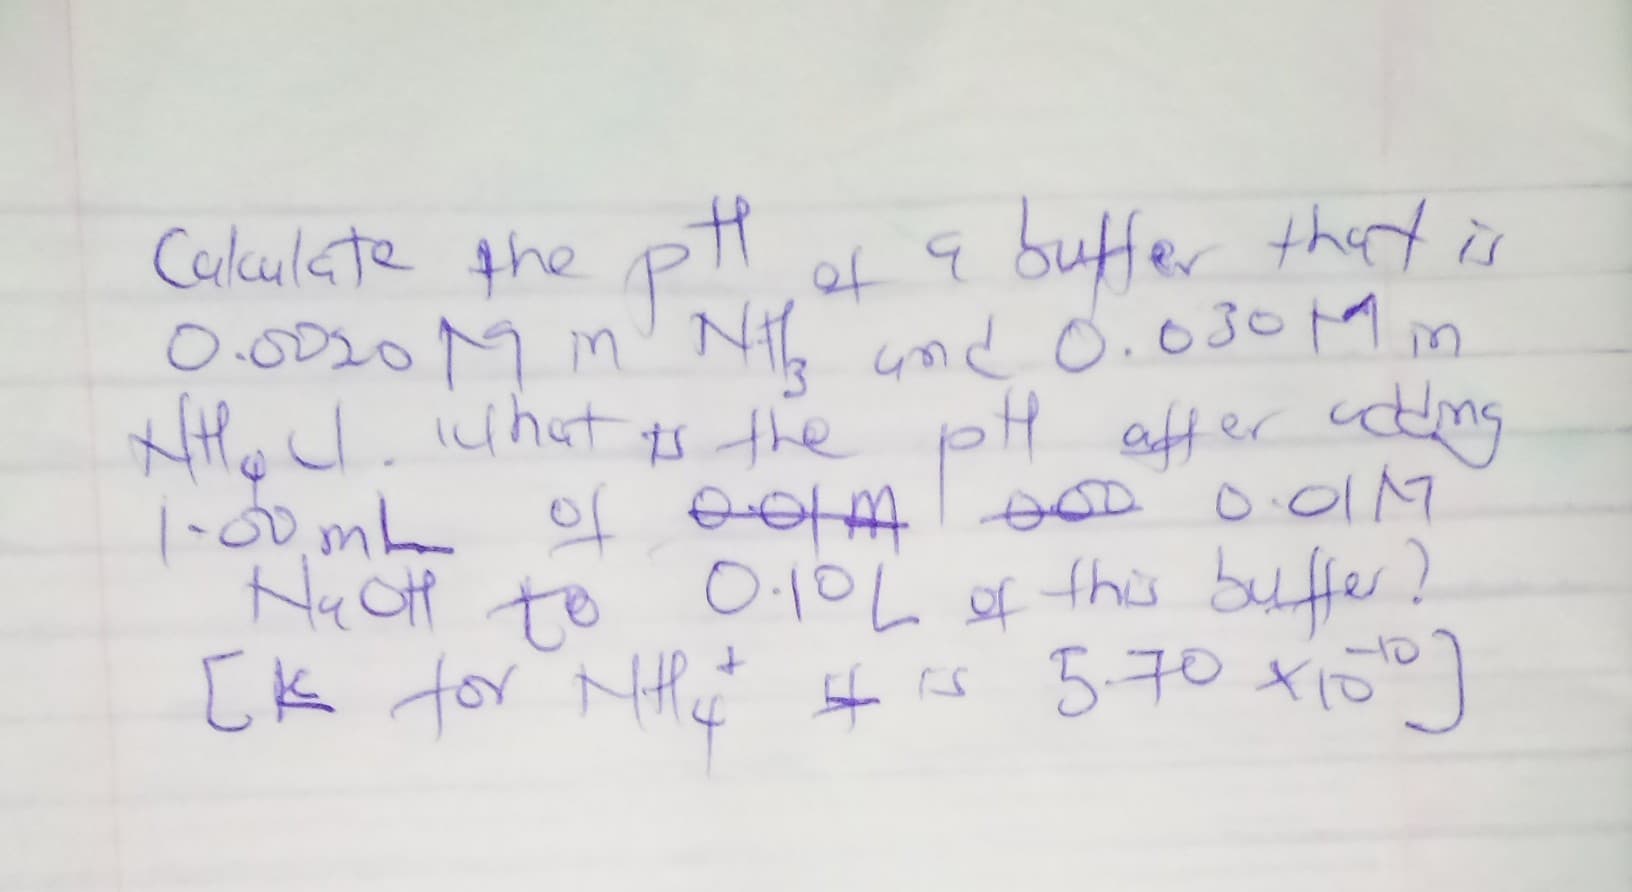 Calculate the pH of a buffer that is
0.0020 M in NH3 and 0.030 M in
NH4Cl. What is the pH after adding
1.00 mL of 0.01M 0.00 0.01M
NaOH to 0.10L of this buffer?
[K for NH4+ is 5.70 x10-10]